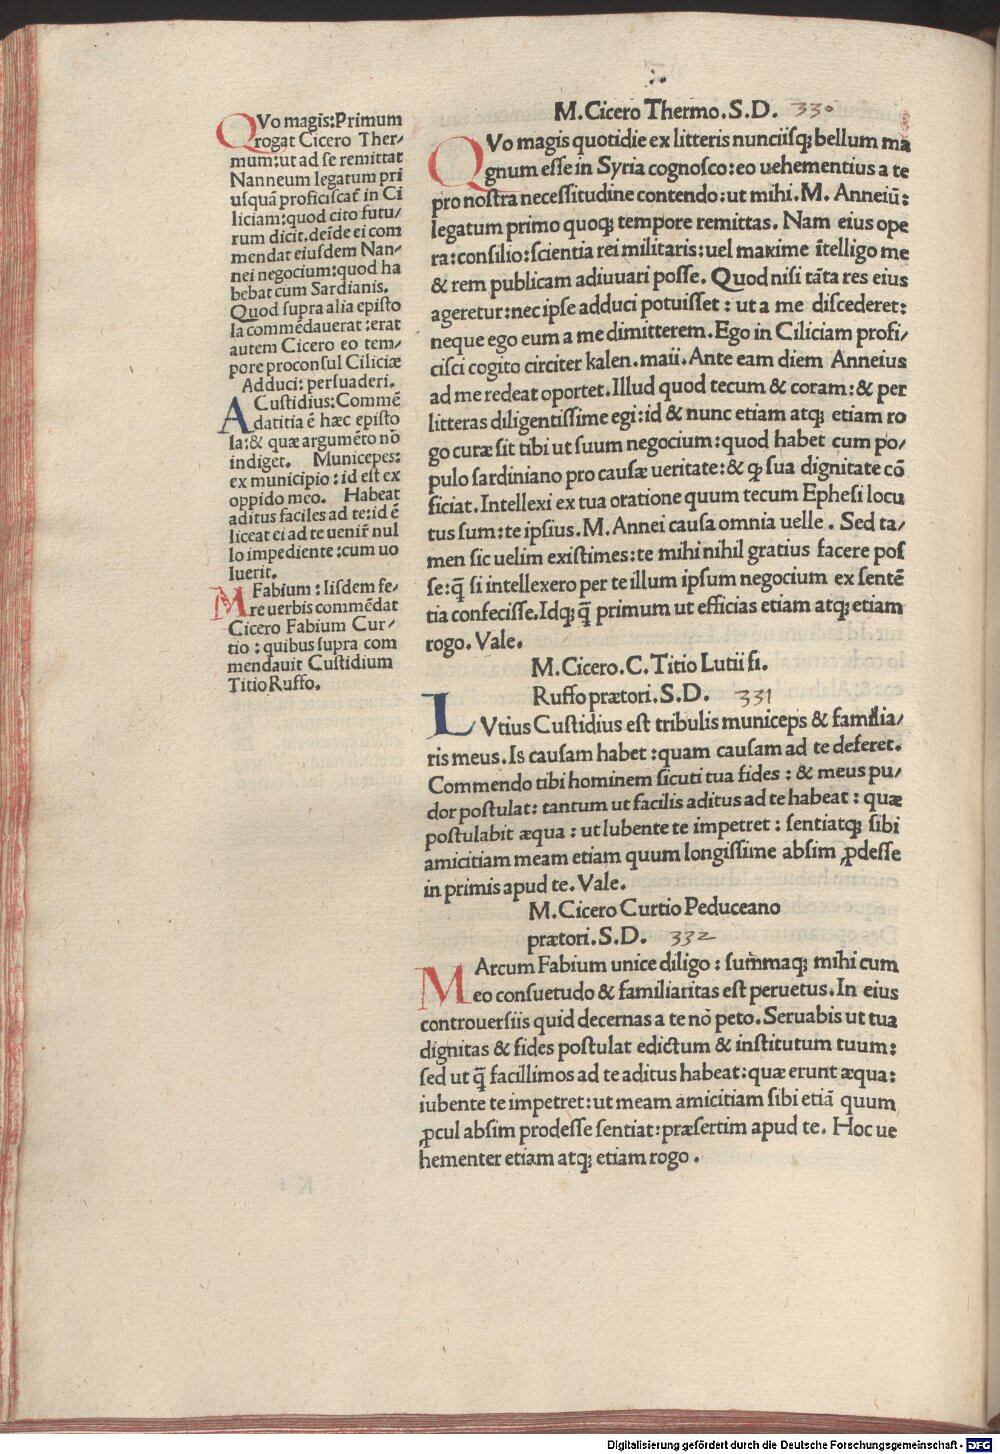 QVo magis:Primum
rogat Cicero Ther/
mum:ut ad se remittat
Nanneum legatum pri
usquā proficiscat᷑ in Ci
liciam:quod cito futu/
rum dicit.deīde ei com
mendat eiusdem Nan/
nei negocium:quod ha
bebat cum Sardianis.
Quod supra alia episto
la commēdauerat:erat
autem Cicero eo tem/
pore proconsul Ciliciæ
Adduci: persuaderi.
ACustidius:Commē
datitia ē hæc episto
la:& quæ argumēto nō
indiget. Municepes:
ex municipio:id est ex
oppido meo. Habeat
aditus faciles ad te:id ē
liceat ei ad te uenir̄ nul
lo impediente:cum uo
luerit.
MFabium:Iisdem fe/
re uerbis commēdat
Cicero Fabium Cur/
tio:quibus supra com
mendauit Custidium
Titio Ruffo.
M.Cicero Thermo.S.D. 330
QVo magis quotidie ex litteris nunciisqꝫ bellum ma
gnum esse in Syria cognosco:eo uehementius a te
pro nostra necessitudine contendo:ut mihi.M. Anneiū:
legatum primo quoqꝫ tempore remittas. Nam eius ope
ra:consilio:scientia rei militaris:uel maxime ītelligo me
& rem publicam adiuuari posse. Quod nisi tāta res eius
ageretur:nec ipse adduci potuisset:ut a me discederet:
neque ego eum a me dimitterem.Ego in Ciliciam profi/
cisci cogito circiter kalen.maii.Ante eam diem Anneius
ad me redeat oportet.Illud quod tecum & coram:& per
litteras diligentissime egi:id & nunc etiam atqꝫ etiam ro
go curæ sit tibi ut suum negocium:quod habet cum po/
pulo sardiniano pro causæ ueritate:& ꝓ sua dignitate cō
ficiat.Intellexi ex tua oratione quum tecum Ephesi locu
tus sum:te ipsius.M.Annei causa omnia uelle. Sed ta/
men sic uelim existimes:te mihi nihil gratius facere pos
se:q̄ si intellexero per te illum ipsum negocium ex sentē
tia confecisse.Idqꝫ q̄ primum ut efficias etiam atqꝫ etiam
rogo.Vale.
M.Cicero.C.Titio Lutii fi.
Ruffo prætori.S.D. 331
LVtius Custidius est tribulis municeps & familia/
ris meus.Is causam habet:quam causam ad te deferet.
Commendo tibi hominem sicuti tua fides:& meus pu/
dor postulat:tantum ut facilis aditus ad te habeat:quæ
postulabit æqua:ut lubente te impetret:sentiatqꝫ sibi
amicitiam meam etiam quum longissime absim ꝓdesse
in primis apud te.Vale.
M.Cicero Curtio Peduceano
prætori.S.D. 332
MArcum Fabium unice diligo:sum̄maqꝫ mihi cum
eo consuetudo & familiaritas est peruetus.In eius
controuersiis quid decernas a te nō peto.Seruabis ut tua
dignitas & fides postulat edictum & institutum tuum:
sed ut q̄ facillimos ad te aditus habeat:quæ erunt æqua:
iubente te impetret:ut meam amicitiam sibi etiā quum
ꝓcul absim prodesse sentiat:præsertim apud te. Hoc ue
hementer etiam atqꝫ etiam rogo.
Digitalisierung gefördert durch die Deutsche Forschungsgemeinschaft - DFG